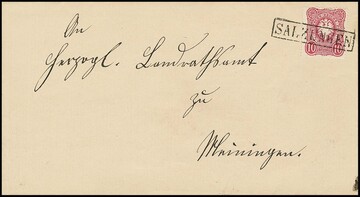 An
Herzogl. Landrathsamt
zu
Meiningen.
SALZUNGEN
10 10